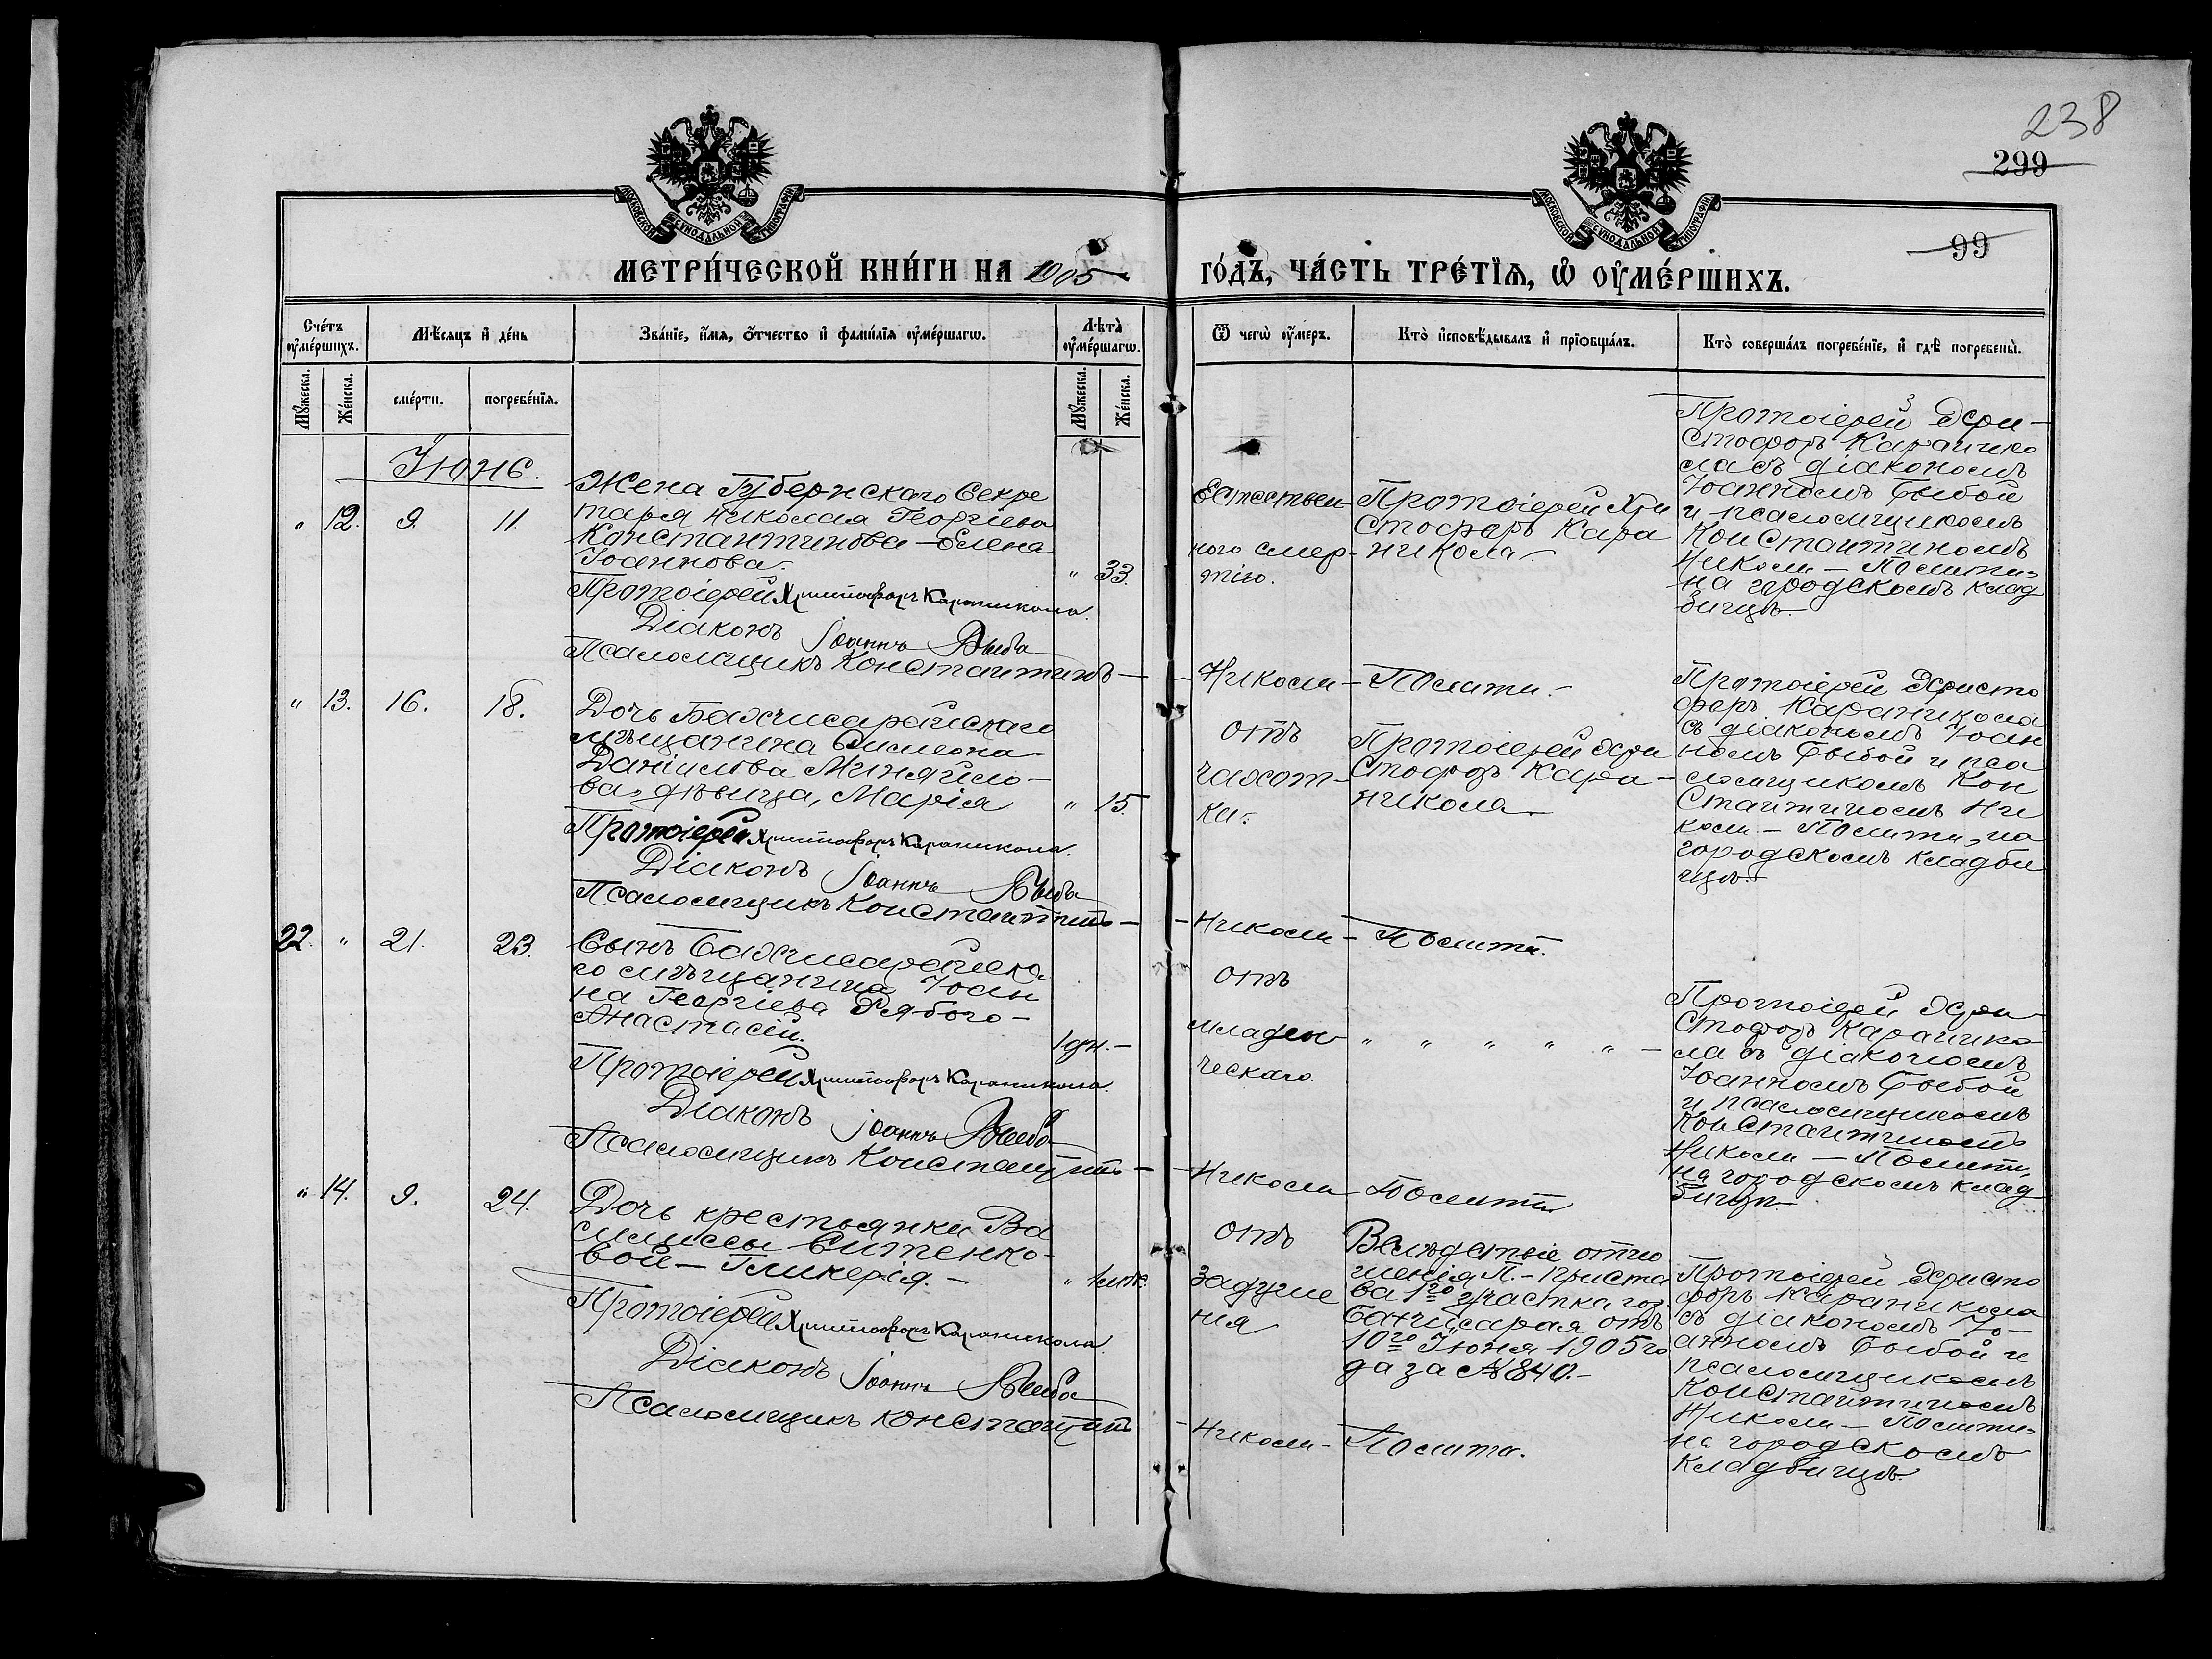 238
299
99
МОСКОВСКОЙ СѴНОДАЛЬНОЙ ТИПОГРАФІИ
МОСКОВСКОЙ СѴНОДАЛЬНОЙ ТИПОГРАФІИ
МЕТРИ́ЧЕСКОЙ КНИ́ГИ НА 1905
ГО́ДЪ, ЧА́СТЬ ТРЕ́ТІѦ, Ѽ ОУ҆МЕ́РШИХЪ.
Сче́тъ оу҆ме́ршихъ.
Мѣ́сяцъ и҆ де́нь
Зва́ніе, и҆́мѧ, о҆́тчество и҆ фами́лїѧ оу҆ме́ршагѡ.
Лѣ́та̀ оу҆ме́ршагѡ.
Ѿ чегѡ̀ оу҆́меръ.
Кто̀ и҆сповѣ́дывалъ и҆ прїѡбща́лъ.
Кто̀ соверша́лъ погребе́нїе, и҆ гдѣ̀ погребены̀.
Мꙋ́жеска.
Же́нска.
сме́рти.
погребе́нїѧ.
Мꙋ́жеска.
Же́нска.
Іюнь.
" 12. 9. 11.
Жена Губернскаго Секре
таря Николая Георгіева
Константинова – Елена
Іоаннова.
" 33.
Протоіерей Христофоръ Караникола.
Діаконъ Іоаннъ Быба
Псаломщикъ Константинъ –
Естествен
ного смер-
тію.
Протоіерей Хри
стофоръ Кара
никола –
Протоіерей Хри-
стофоръ Каранико
ла съ діакономъ
Іоанномъ Быбой
и псаломщикомъ
Константиномъ
Ником – Полити,
на городскомъ клад
бищѣ –
– Ником – Полити. –
" 13. 16. 18.
Дочь Бахчисарайскаго
мѣщанина Симеона
Даніилова Миняйло-
ва, дѣвица, Марія
" 15.
Протоіерей Христофоръ Караникола.
Діаконъ Іоаннъ Быба
Псаломщикъ Константинъ –
отъ
чахот-
ки.
Протоіерей Хри
стофоръ Кара-
никола.
Протоіерей Христо
форъ Караникола
съ діакономъ Іоан
номъ Быбой и пса
ломщикомъ Кон
стантиномъ Ни
ком – Полити, на
городскомъ кладби
щѣ.
– Ником – Полити.
22. " 21. 23.
Сынъ Бахчисарайска
го мѣщанина Іоан
на Георгіева Рябого –
Анастасій.
1 дн. –
Протоіерей Христофоръ Караникола.
Діаконъ Іоаннъ Быба
Псаломщикъ Константинъ –
отъ
младен
ческаго.
" " " " " –
Протоіерей Хри
стофоръ Каранико-
ла съ діакономъ
Іоанномъ Быбой
и псаломщикомъ
Константиномъ
Ником – Полити,
на городскомъ клад
бищѣ. –
– Ником – Полити
" 14. 9. 24.
Дочь крестьянки Ва
силиссы Ситенко-
вой – Гликерія. –
"
Протоіерей Христофоръ Караникола.
Діаконъ Іоаннъ Быба
Псаломщикъ Константинъ
отъ
задуше
нія
Вслѣдствіе отно
шенія П. – Приста
ва 1го участка гор.
Бахчисарая отъ
10го Іюня 1905 го
да за № 840. –
Протоіерей Христо
форъ Караникола
съ діакономъ Іо-
анномъ Быбой и
псаломщикомъ
Константиномъ
Ником – Полити,
на городскомъ
кладбищѣ.
– Ником – Полити.